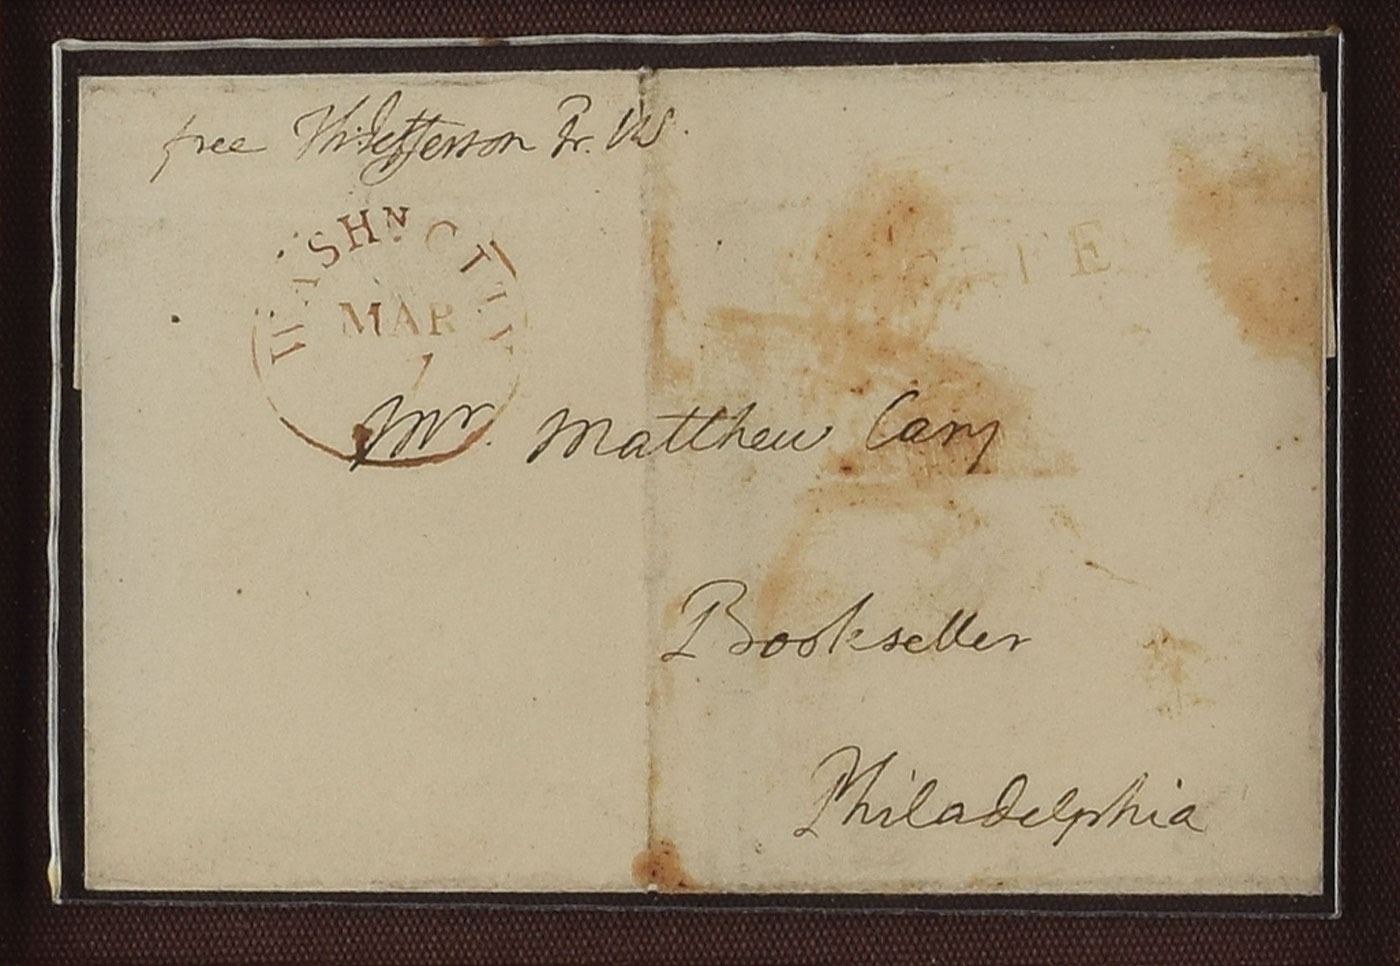 free Th: Jefferson Pr. US.
WASHN CITY
MAR
1
Mr. Matthew Cary
Bookseller
Philadelphia